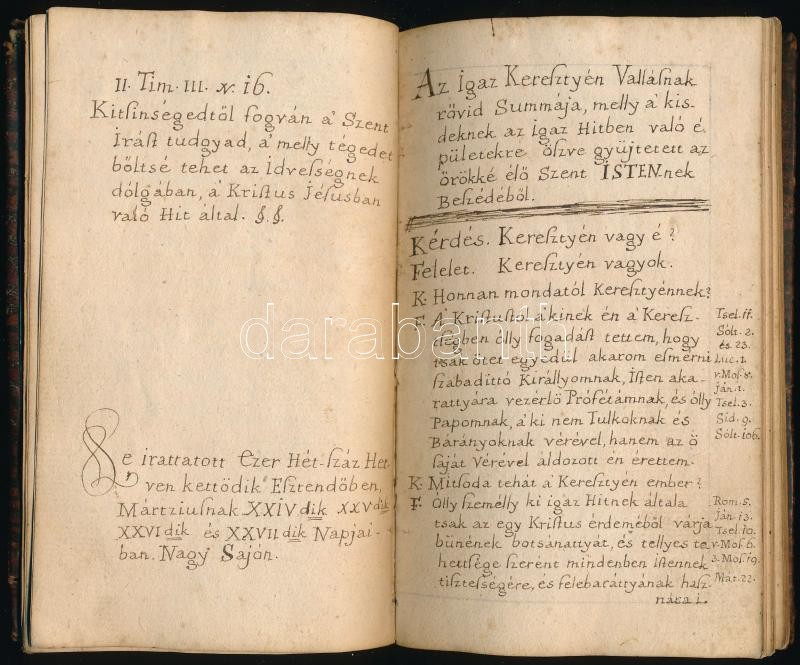 II. Tim. III. v. 16.
Kitsinségedtöl fogván a' Szent
Irást tudgyad, a' melly tégedet
böltsé tehet az idvességnek
dólgában, á Kristus Jésusban
való Hit által. §. §.
Le irattatott Ezer Hét-száz Het-
ven kettödik Esztendöben,
Mártziusnak XXIVdik XXVdik
XXVIdik és XXVIIdik Napjai-
ban. Nagy Sajón.
Az Igaz Keresztyén Vallásnak
rövid Summája, melly á kis-
deknek az igaz Hitben való é-
pületekre öszve gyüjtetett az
örökké élö Szent ISTENnek
Beszédéböl.
Kérdés. Keresztyén vagy é?
Felelet. Keresztyén vagyok.
K. Honnan mondatól Keresztyénnek?
F. A' Kristustól, á kinek én á Keresz-
ségben olly fogadást tettem, hogy
tsak ötet egyedül akarom esmérni
szabadittó Királlyomnak, Isten aka-
rattyára vezérlö Prófétámnak, és olly
Papomnak, á ki nem Tulkoknak és
Bárányoknak vérével, hanem az ö
saját Vérével áldozott én érettem.
K. Mitsoda tehát á Keresztyén ember?
F. Olly személly ki igaz Hitnek általa
tsak az egy Kristus érdeméböl várja
bünének botsánattyát, és tellyes te-
hettsége szerént mindenben Istennek
tisztességére, és felebaráttyának hasz-
nára i.
Tsel. 11.
Sólt. 2.
és. 23.
Luc. 1.
v. Mos. 8.
Ján. 1.
Tsel. 3.
Sid. 9.
Sólt. 106.
Rom. 5.
Ján. 13.
Tsel. 10.
v. Mos. 6.
3. Mos. 19.
Mát. 22.
darabanth